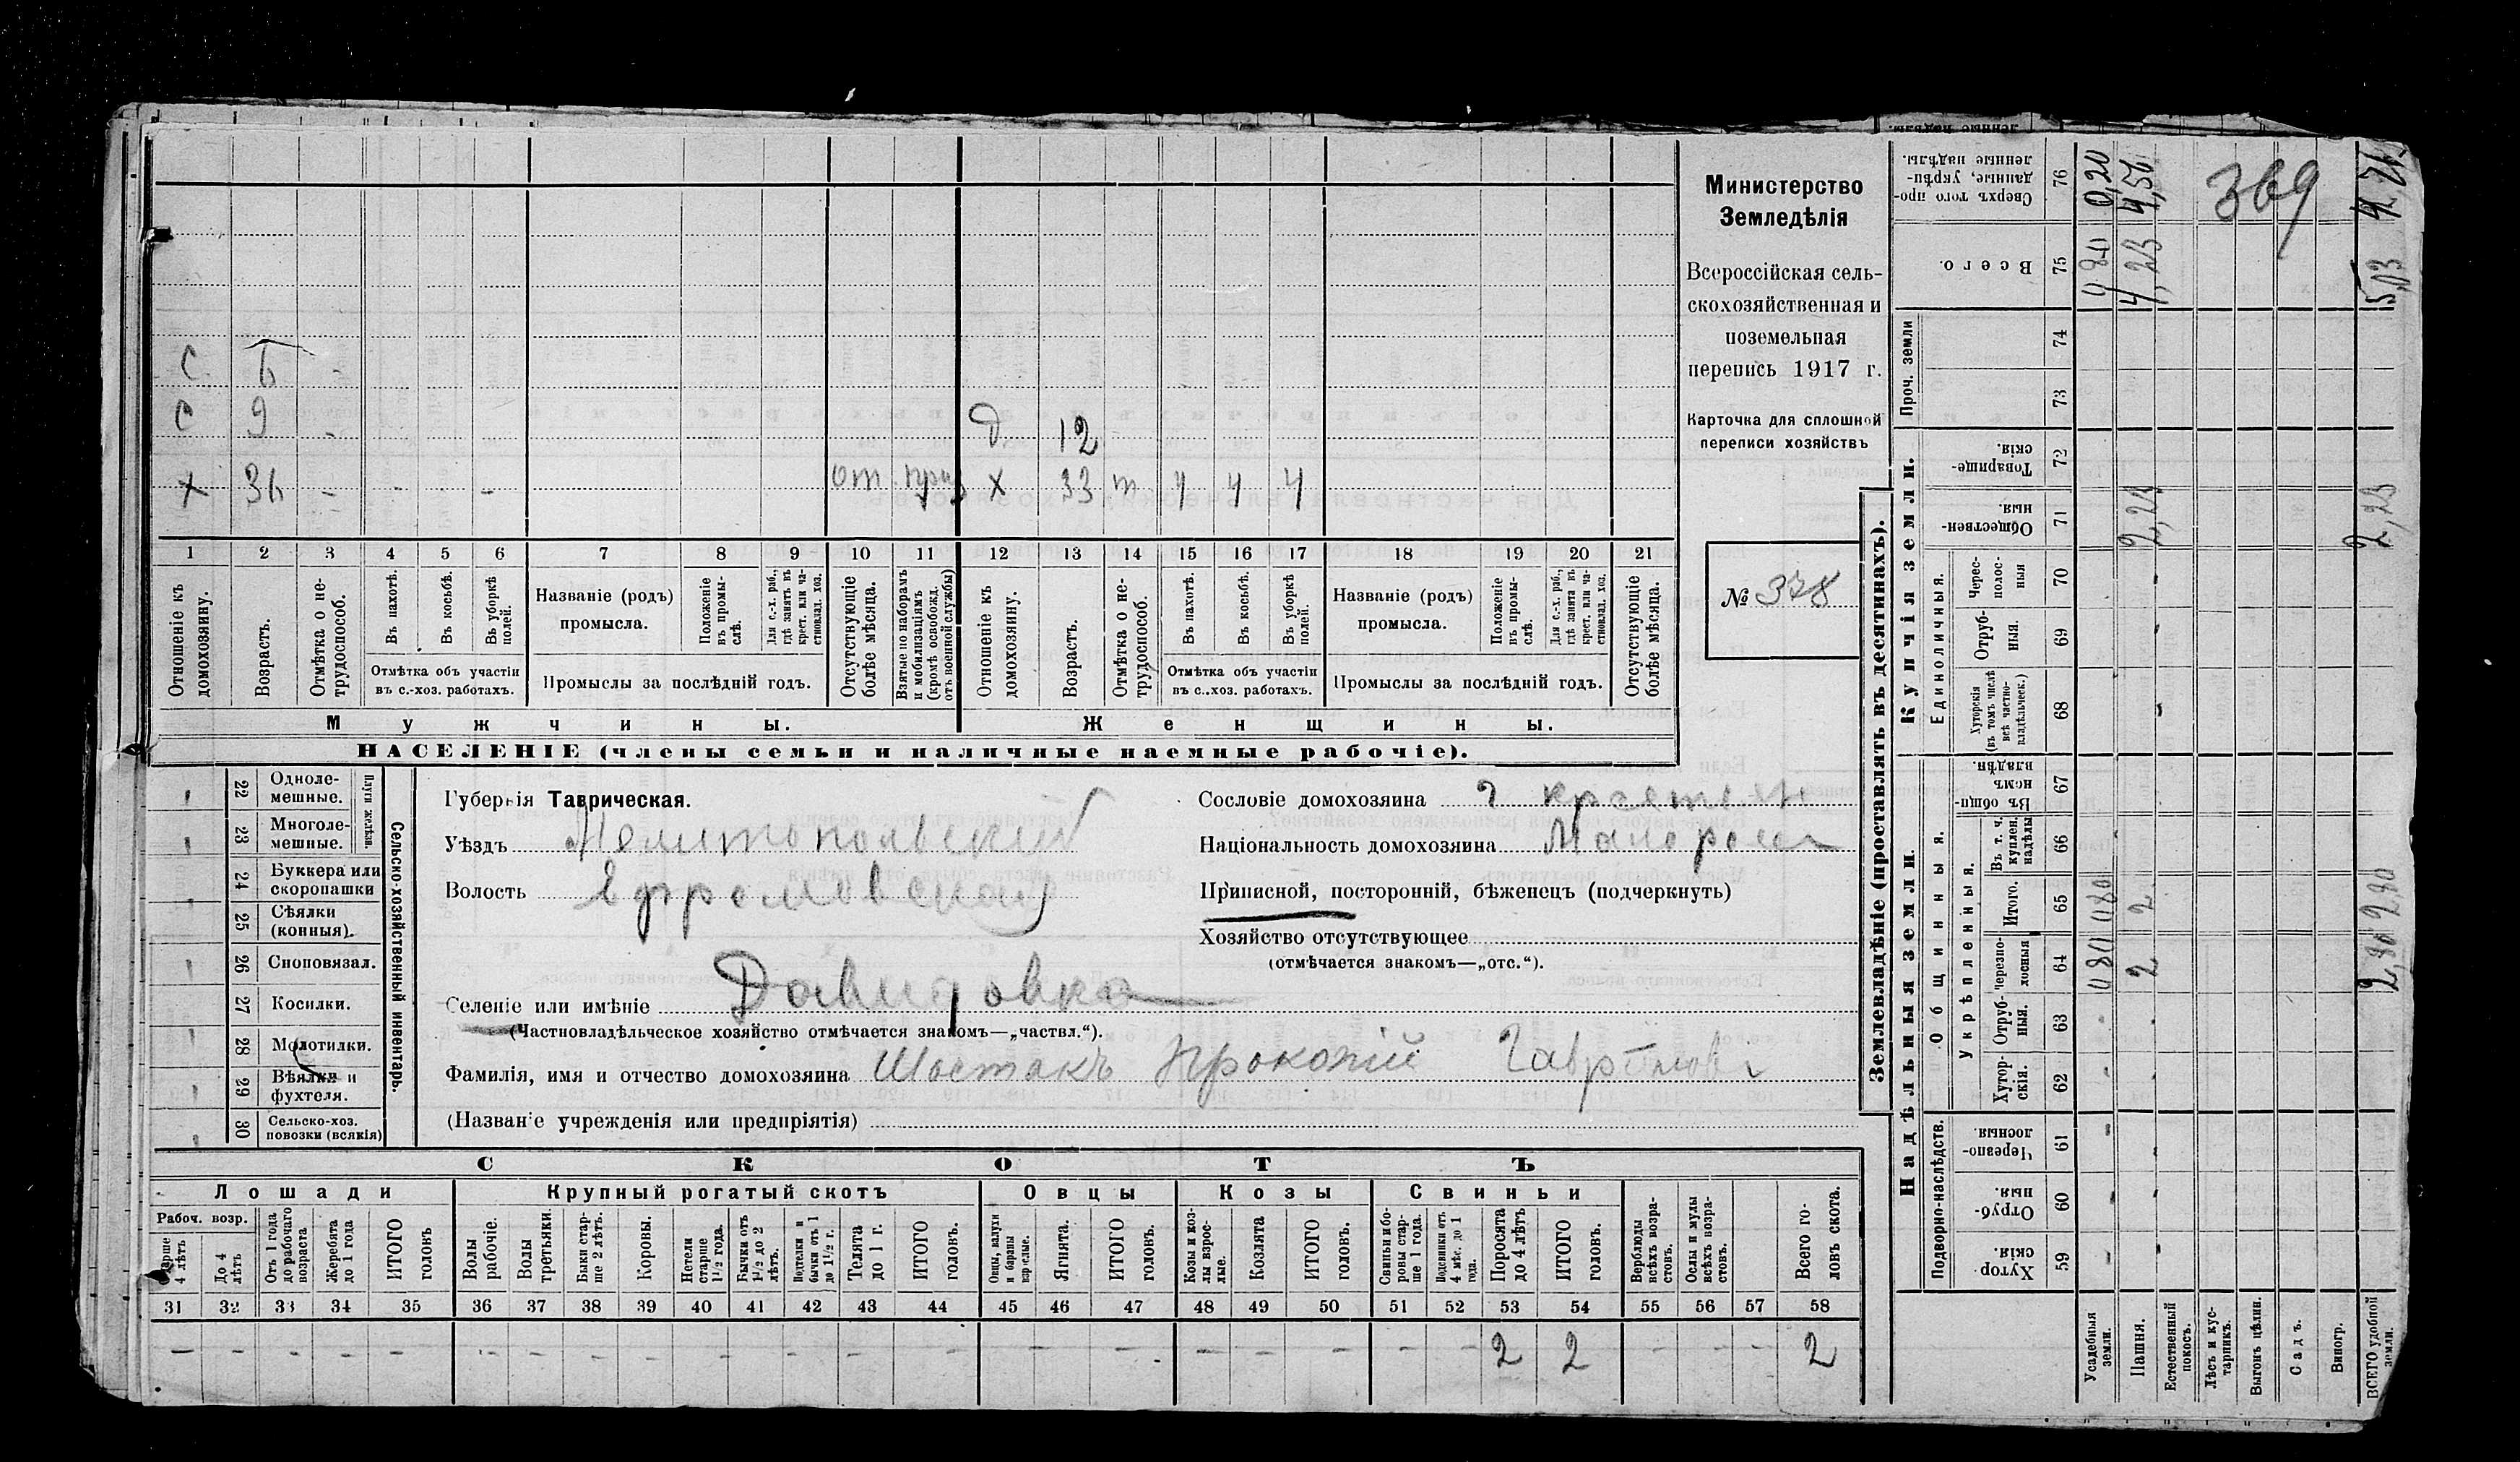 Министерство
Земледѣлія
Всероссійская сель-
скохозяйственная и
поземельная
перепись 1917 г.
Карточка для сплошной
переписи хозяйствъ
№ 378
369
С 6
С 9 д 12
х 36 - - - - от. х 33 т ч ч ч
1 2 3 4 5 6 7 8 9 10 11 12 13 14 15 16 17 18 19 20 21
Отношеніе къ домохозяину.
Возрастъ.
Отмѣтка о не-трудоспособ.
Въ пахотѣ.
Въ косьбѣ.
Въ уборкѣ полей.
Отмѣтка объ участіи
въ с.-хоз. работахъ.
Названіе (родъ)
промысла.
Положеніе въ промы-слѣ.
Для с.-х. раб., гдѣ занятъ въ крест. или ча-стновлад. хоз.
Промыслы за послѣдній годъ.
Отсутствующіе болѣе мѣсяца.
Взятые по наборамъ и мобилизаціямъ (кромѣ освобожд. отъ военной службы)
Отношеніе къ домохозяину.
Возрастъ.
Отмѣтка о не-трудоспособ.
Въ пахотѣ.
Въ косьбѣ.
Въ уборкѣ полей.
Отмѣтка объ участіи
въ с.-хоз. работахъ.
Названіе (родъ)
промысла.
Положеніе въ промы-слѣ.
Для с.-х. раб., гдѣ занята въ крест. или ча-стновлад. хоз.
Промыслы за послѣдній годъ.
Отсутствующіе болѣе мѣсяца.
Мужчины. Женщины.
НАСЕЛЕНІЕ (члены семьи и наличные наемные рабочіе).
22 Одноле-мешные.
23 Многоле-мешные.
Плуги желѣзн.
24 Буккера или скоропашки
25 Сѣялки (конныя).
26 Сноповязал.
27 Косилки.
28 Молотилки.
29 Вѣялки и фухтеля.
30 Сельско-хоз. повозки (всякія)
Сельско-хозяйственный инвентарь.
Губернія Таврическая.
Уѣздъ Мелитопольскій
Волость Ефремовская
Селеніе или имѣніе Давидовка
(Частновладѣльческое хозяйство отмѣчается знакомъ—„частвл.“).
Фамилія, имя и отчество домохозяина Шостакъ Прокопій
(Названіе учрежденія или предпріятія)
Сословіе домохозяина
Національность домохозяина Малоросс
Приписной, посторонній, бѣженецъ (подчеркнуть)
Хозяйство отсутствующее
(отмѣчается знакомъ—„отс.“).
СКОТЪ
Лошади Крупный рогатый скотъ Овцы Козы Свиньи
Рабоч. возр.
Старше 4 лѣтъ
До 4 лѣтъ
Отъ 1 года до рабочаго возраста
Жеребята до 1 года
ИТОГО головъ
Волы рабочіе.
Волы третьяки.
Быки стар-ше 2 лѣтъ.
Коровы.
Нетели старше 1½ года.
Бычки отъ 1½ до 2 лѣтъ.
Подтелки и бычки отъ 1 до 1½ г.
Телята до 1 г.
ИТОГО головъ.
Овцы, валухи и бараны взрослые.
Ягнята.
ИТОГО головъ.
Козы и коз-лы взрос-лые.
Козлята
ИТОГО головъ.
Свиньи и бо-ровы стар-ше 1 года.
Подсвинки отъ 4 мѣс. до 1 года.
Поросята до 4 лѣтъ
ИТОГО головъ.
Верблюды всѣхъ возра-стовъ.
Ослы и мулы всѣхъ возра-стовъ.
Всего го-ловъ скота.
31 32 33 34 35 36 37 38 39 40 41 42 43 44 45 46 47 48 49 50 51 52 53 54 55 56 57 58
2 2 2
Землевладѣніе (проставлять въ десятинахъ).
Надѣльныя земли. Купчія земли.
Подворно-наслѣдств.
Общинныя.
Укрѣпленныя.
Единоличныя.
Проч. земли
Хутор-скія. 59
Отруб-ныя. 60
Черезпо-лосныя. 61
Хутор-скія. 62
Отруб-ныя. 63
Черезпо-лосныя 64
Итого. 65
Въ т. ч. куплен. надѣлы 66
Въ общи-номъ владѣн. 67
Хуторскія (въ томъ числѣ всѣ частно-владѣльческ.) 68
Отруб-ныя. 69
Черес-полос-ныя 70
Обществен-ныя. 71
Товарище-скія. 72
73
74
Всего. 75
Сверхъ того про-данные, укрѣп-ленные надѣлы. 76
Усадебныя земли. 0,80 0,80 0,80 0,20
Пашня. 2 2 2,23 4,23 4,50
Естественный покосъ.
Лѣсъ и кус-тарникъ.
Выгонъ цѣлин.
Садъ.
Виногр.
ВСЕГО удобной земли. 2,80 2,80 2,23 5,03